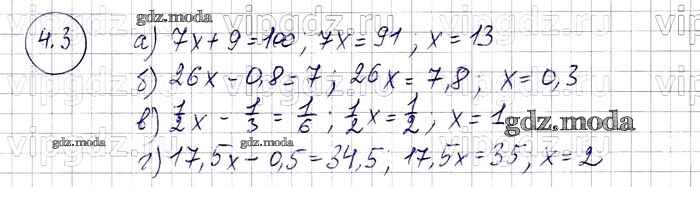 4.3 а) 7x + 9 = 100, 7x = 91; x = 13
б) 26x - 0,8 = 7; 26x = 7,8; x = 0,3
в) 1/2 x - 1/3 = 1/6; 1/2 x = 1/2, x = 1
г) 17,5x - 0,5 = 34,5; 17,5x = 35, x = 2
gdz.moda
gdz.moda
gdz.moda
gdz.moda
gdz.moda
gdz.moda
vipgdz.ru